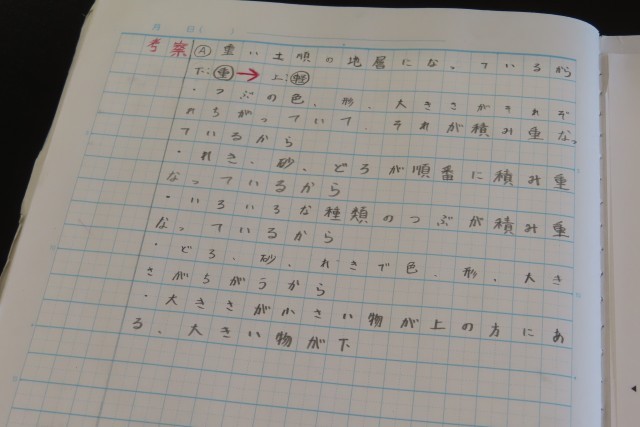 月 日( )
考案 Ⓐ 重い土順の地層になっているから
下:㊥重→上:軽
・つぶの色、形、大きさがそれぞ
れちがっていて、それが積み重なっ
ているから
・れき、砂、どろが順番に積み重
なっているから
・いろいろな種類のつぶが積み重
なっているから
・どろ、砂、れきで色、形、大き
さがちがうから
・大きさが小さい物が上の方にあ
る、大きい物が下